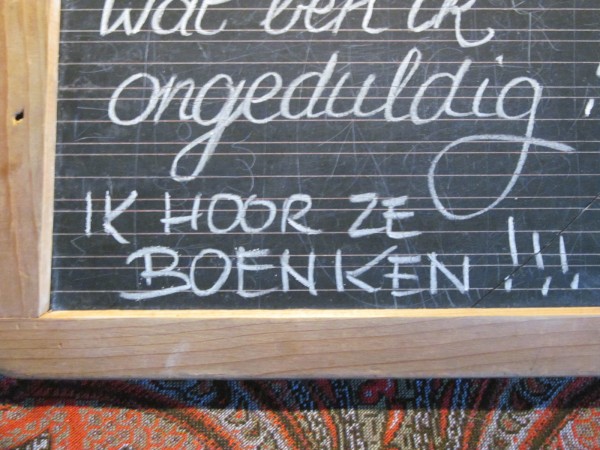 Wat ben ik
ongeduldig !
IK HOOR ZE
BOENKEN !!!